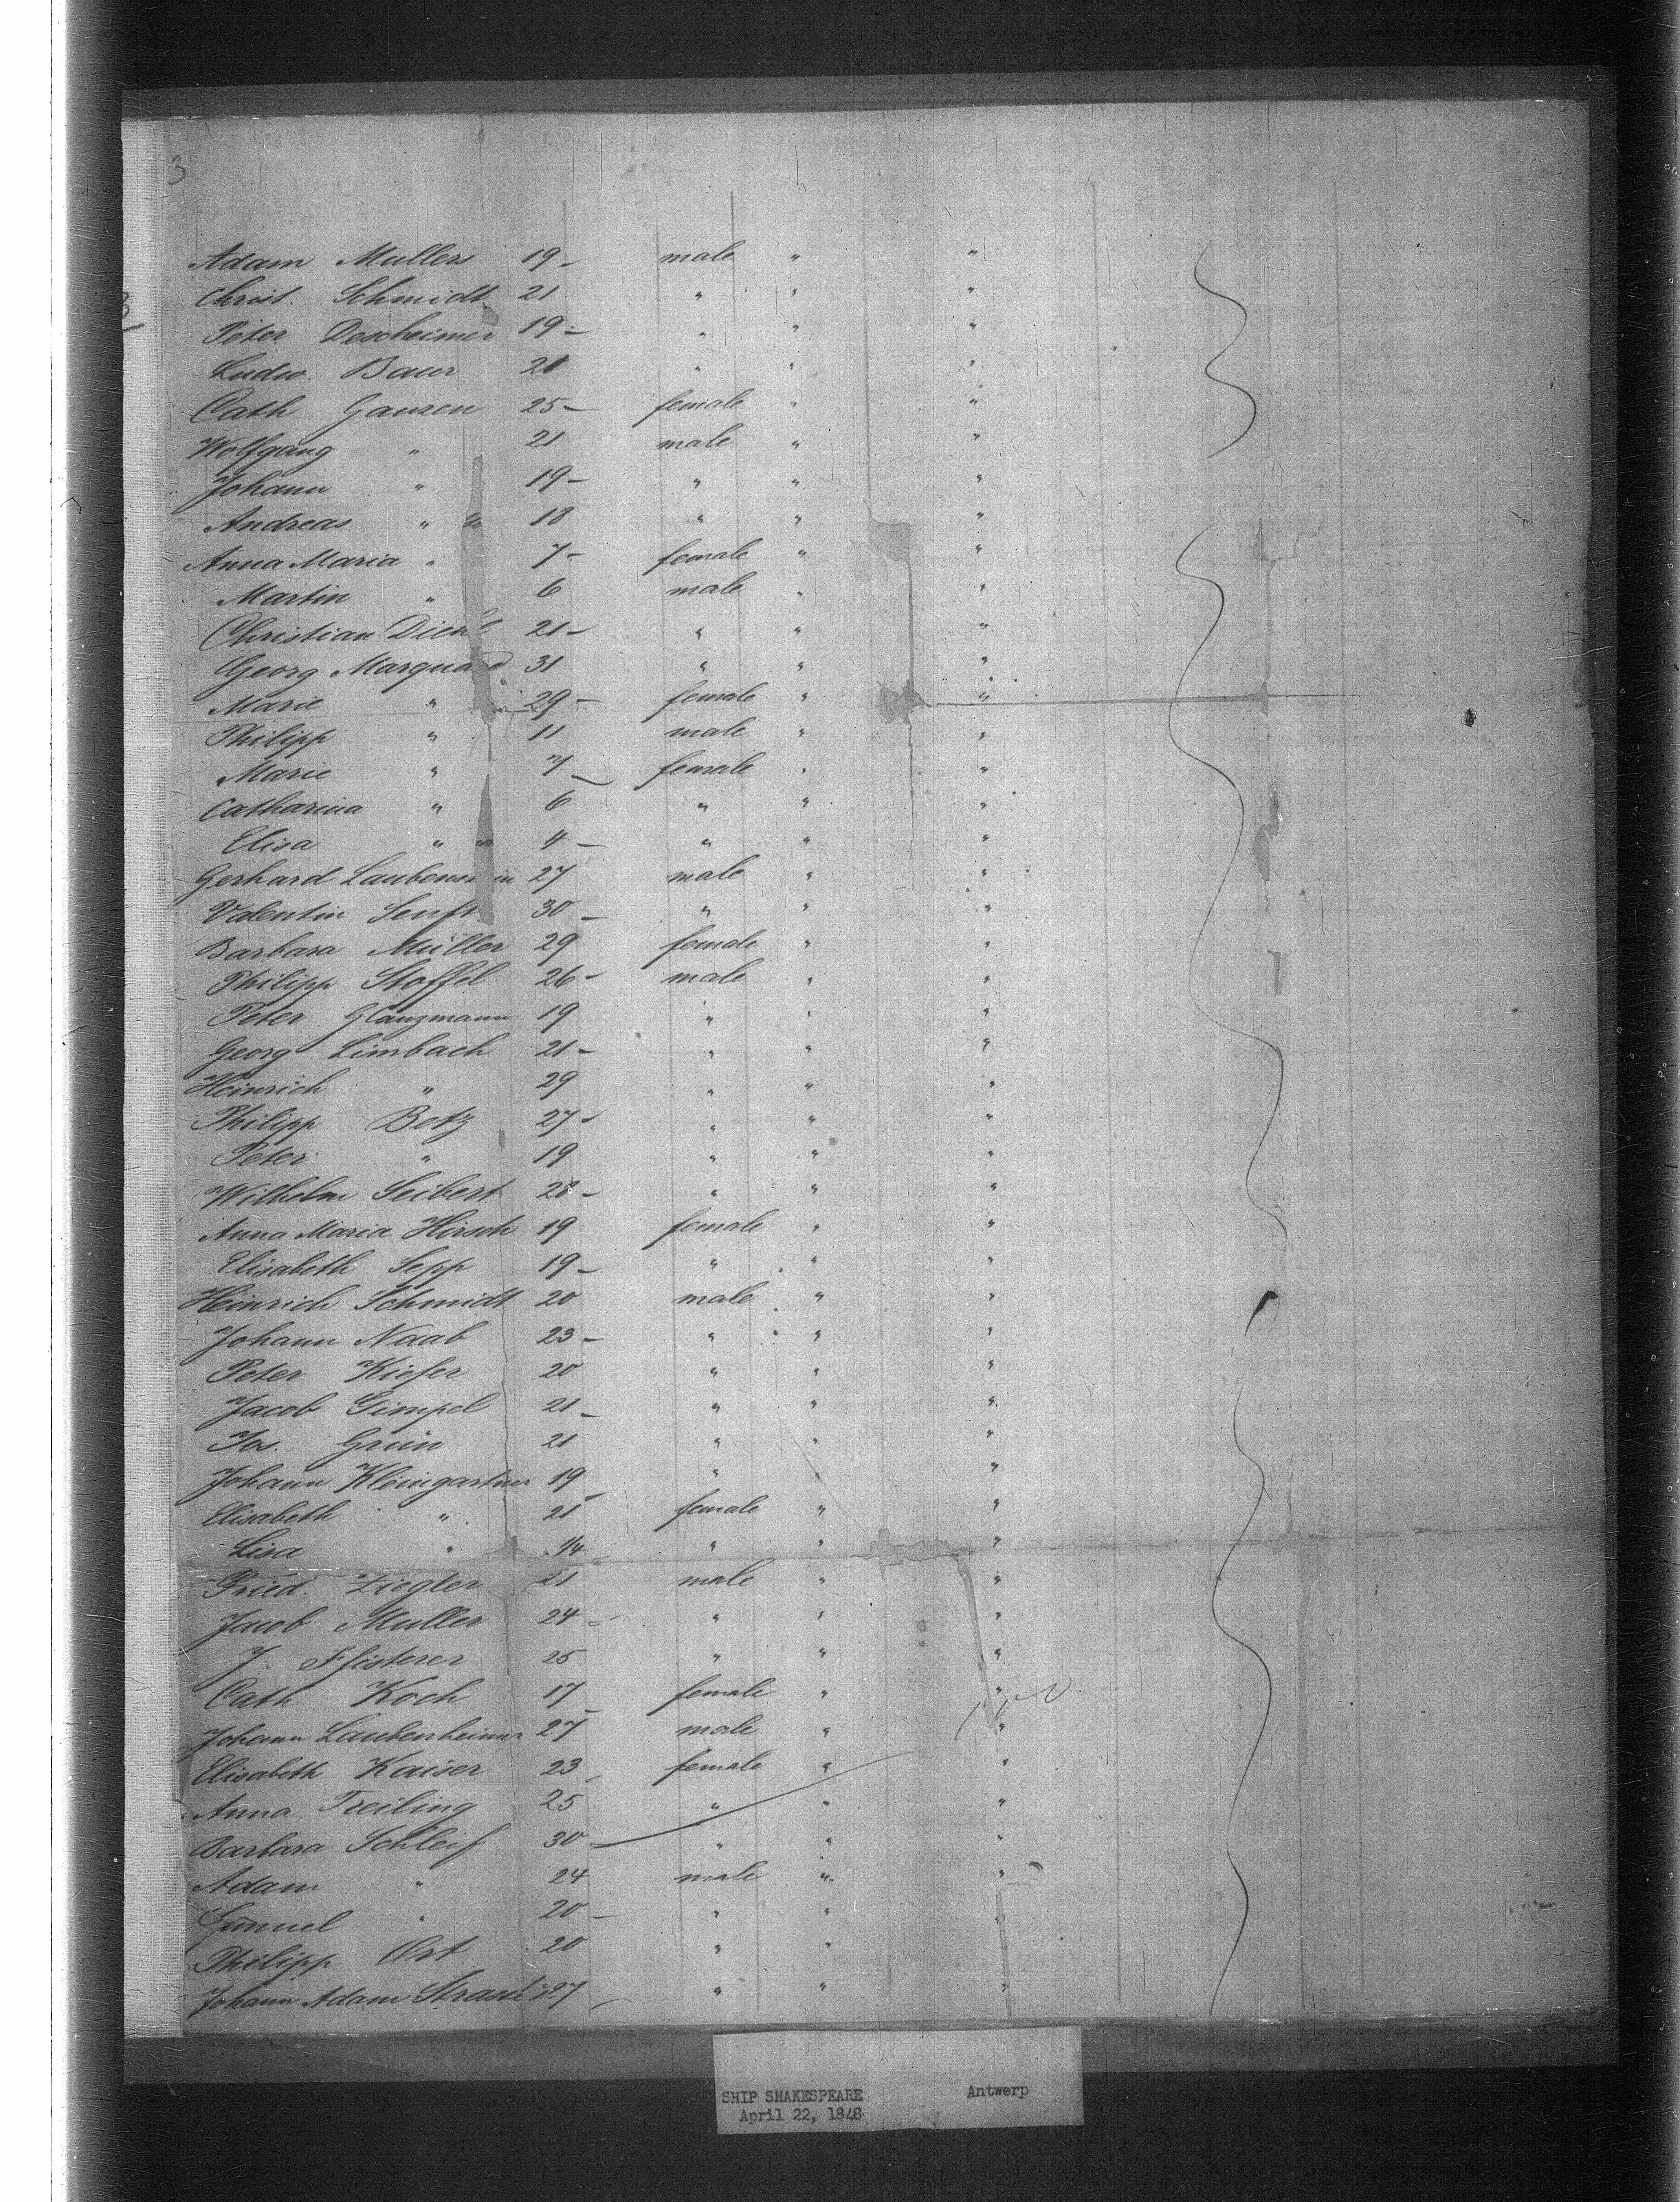 3
Adam Mullers 19 - male " "
Christ. Schmidt 21 " " "
Peter Descheimer 19 - " " "
Ludw. Baur 20 " " "
Cath Ganzen 25 - female " "
Wolfgang " 21 male " "
Johann " 19 - " " "
Andreas " 18 " " "
Anna Maria " 7 - female " "
Martin " 6 male " "
Christian Diehl 21 - " " "
Georg Marquard 31 " " "
Marie " 29 - female " "
Philipp " 11 male " "
Marie " 7 - female " "
Catharina " 6 " " "
Elisa " 4 - " " "
Gerhard 27 male " "
Valentin Senft 30 - " " "
Barbara Müller 29 female " "
Philipp Stoffel 26 - male " "
Peter Glanzmann 19 " " "
Georg Limbach 21 - " " "
Heinrich " 29 " " "
Philipp Betz 27 - " " "
Peter " 19 " " "
Wilhelm Seibert 28 - " " "
Anna Maria Hirsch 19 female " "
Elisabeth Sepp 19 - " " "
Heinrich Schmidt 20 male " "
Johann Naab 23 - " " "
Peter Kiefer 20 " " "
Jacob Gimpel 21 - " " "
Jos. Grün 21 " " "
Johann Kleingartner 19 - " " "
Elisabeth " 21 female " "
Lisa " 1/4 - " " "
Fried. Ziegler 21 male " "
Jacob Muller 24 - " " "
J. Pfisterer 25 " " "
Cath Koch 17 - female " "
Johann Laubenheimer 27 male " "
Elisabeth Kaiser 23 - female " "
Anna Treiling 25 " " "
Barbara Schleif 30 - " " "
Adam " 24 male " "
" 20 - " " "
Philipp Ort 20 " " "
Johann Adam 27 - " " "
SHIP SHAKESPEARE Antwerp
April 22, 1848